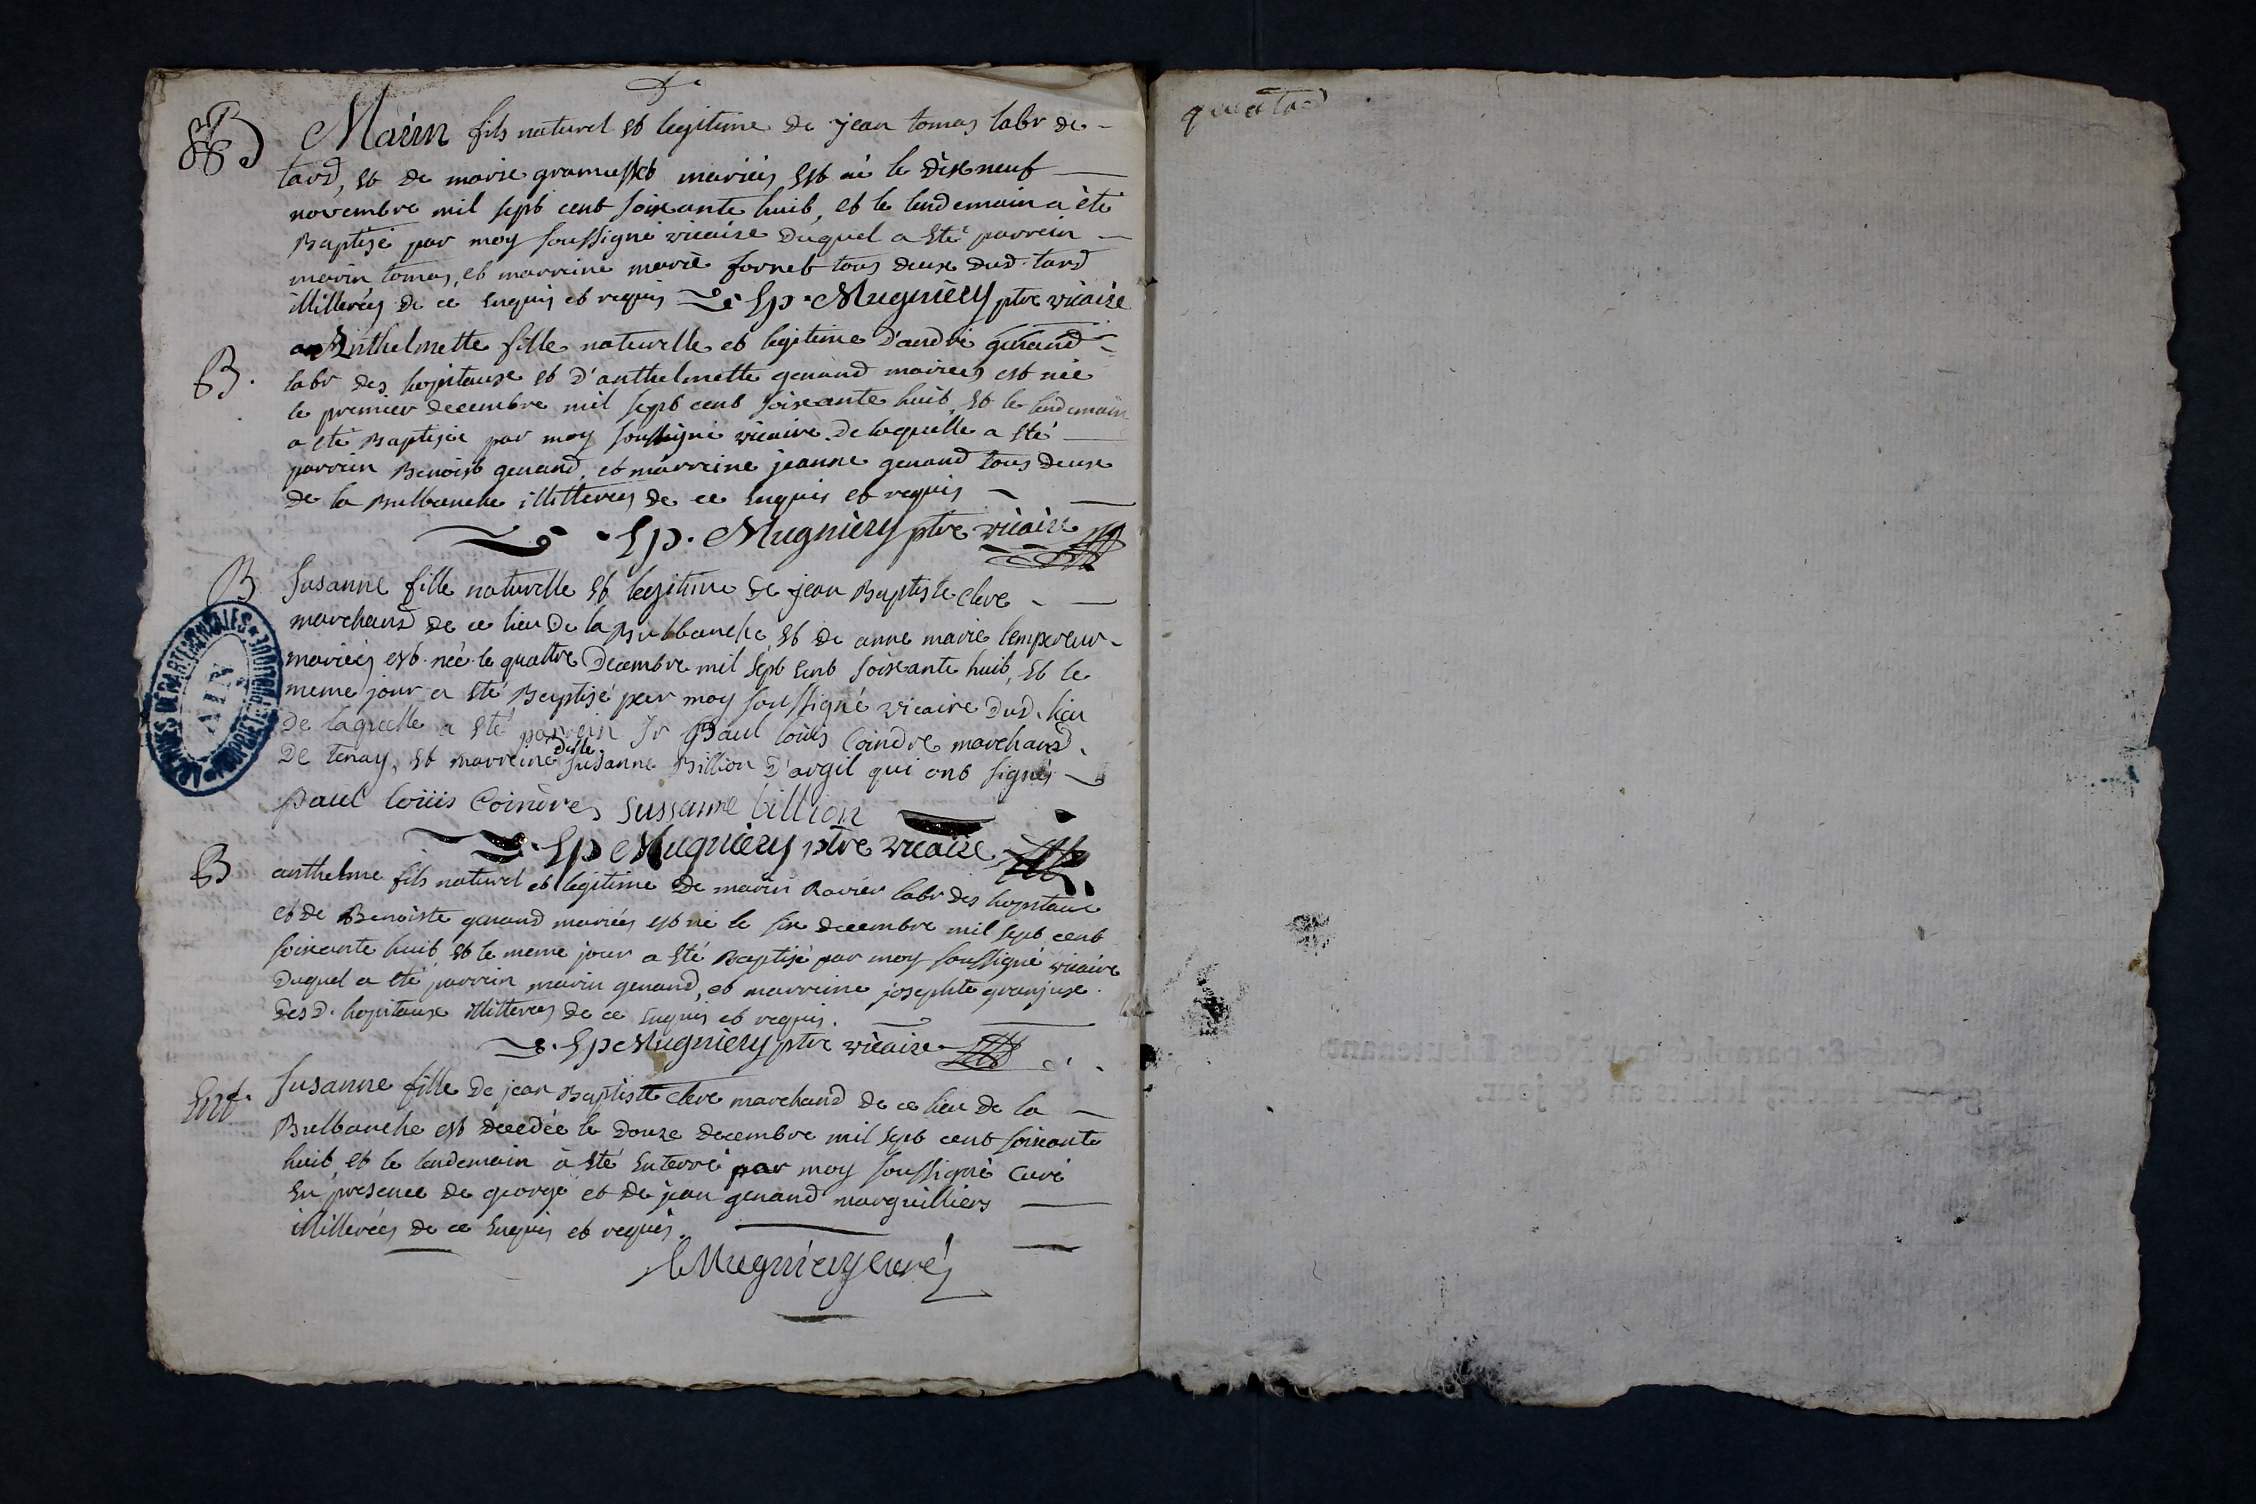 B Marin fils naturel et legitime de jean tomas labr de
tard, et de marie gramusset mariés est né le dixneuf
novembre mil sept cent soixante huit, et le lendemain a été
Baptisé par moy soussigné vicaire duquel a eté parrein
marin tomas, et marreine marie fornet tous deux dud. tard
illitterés de ce enquis et requis Ep. Mugniery ptre vicaire
B. Anthelmette fille naturelle et legitime d'andré genand
labr des hopitaux et d'anthelmette genand mariés est née
le premier decembre mil sept cent soixante huit, et le lendemain
a eté Baptisée par moy soussigné vicaire. de laquelle a eté
parrein Benoist genand, et marreine jeanne genand tous deux
de la Bulbanche illitterés de ce enquis et requis
Ep. Mugniery ptre vicaire
B Susanne fille naturelle et legitime de jean Baptiste Clere
marchand de ce lieu de la Burbanche et de anne marie l'empereur
mariés est née le quattre decembre mil sept cent soixante huit, et le
meme jour a eté Baptisé par moy soussigné vicaire dud. lieu
de laquelle a eté parrein Sr Paul loüis Coindre marchand
de tenay, et marreine dlle Susanne Billion d'argil qui ont signés
paul loüis Coindre, sussanne billion
Ep Mugniery ptre vicaire
B anthelme fils naturel et legitime de marin Ravier labr des hopitaux
et de Benoiste genand mariés est né le six decembre mil sept cent
soixante huit et le meme jour a eté Baptisé par moy soussigné vicaire
duquel a eté parrein marin genand, et marreine josephte granjux
desd. hopitaux illitterés de ce enquis et requis.
Ep Mugniery ptre vicaire
Ent. Susanne fille de jean Baptiste Clere marchand de ce lieu de la
Bulbanche est decedée le douze decembre mil sept cent soixante
huit et le lendemain à eté enterré par moy soussigné Curé
en presence de george et de jean genand marguilliers
illitterés de ce enquis et requis.
Mugniery curé
ARCHIVES DÉPARTEMENTALES
AIN